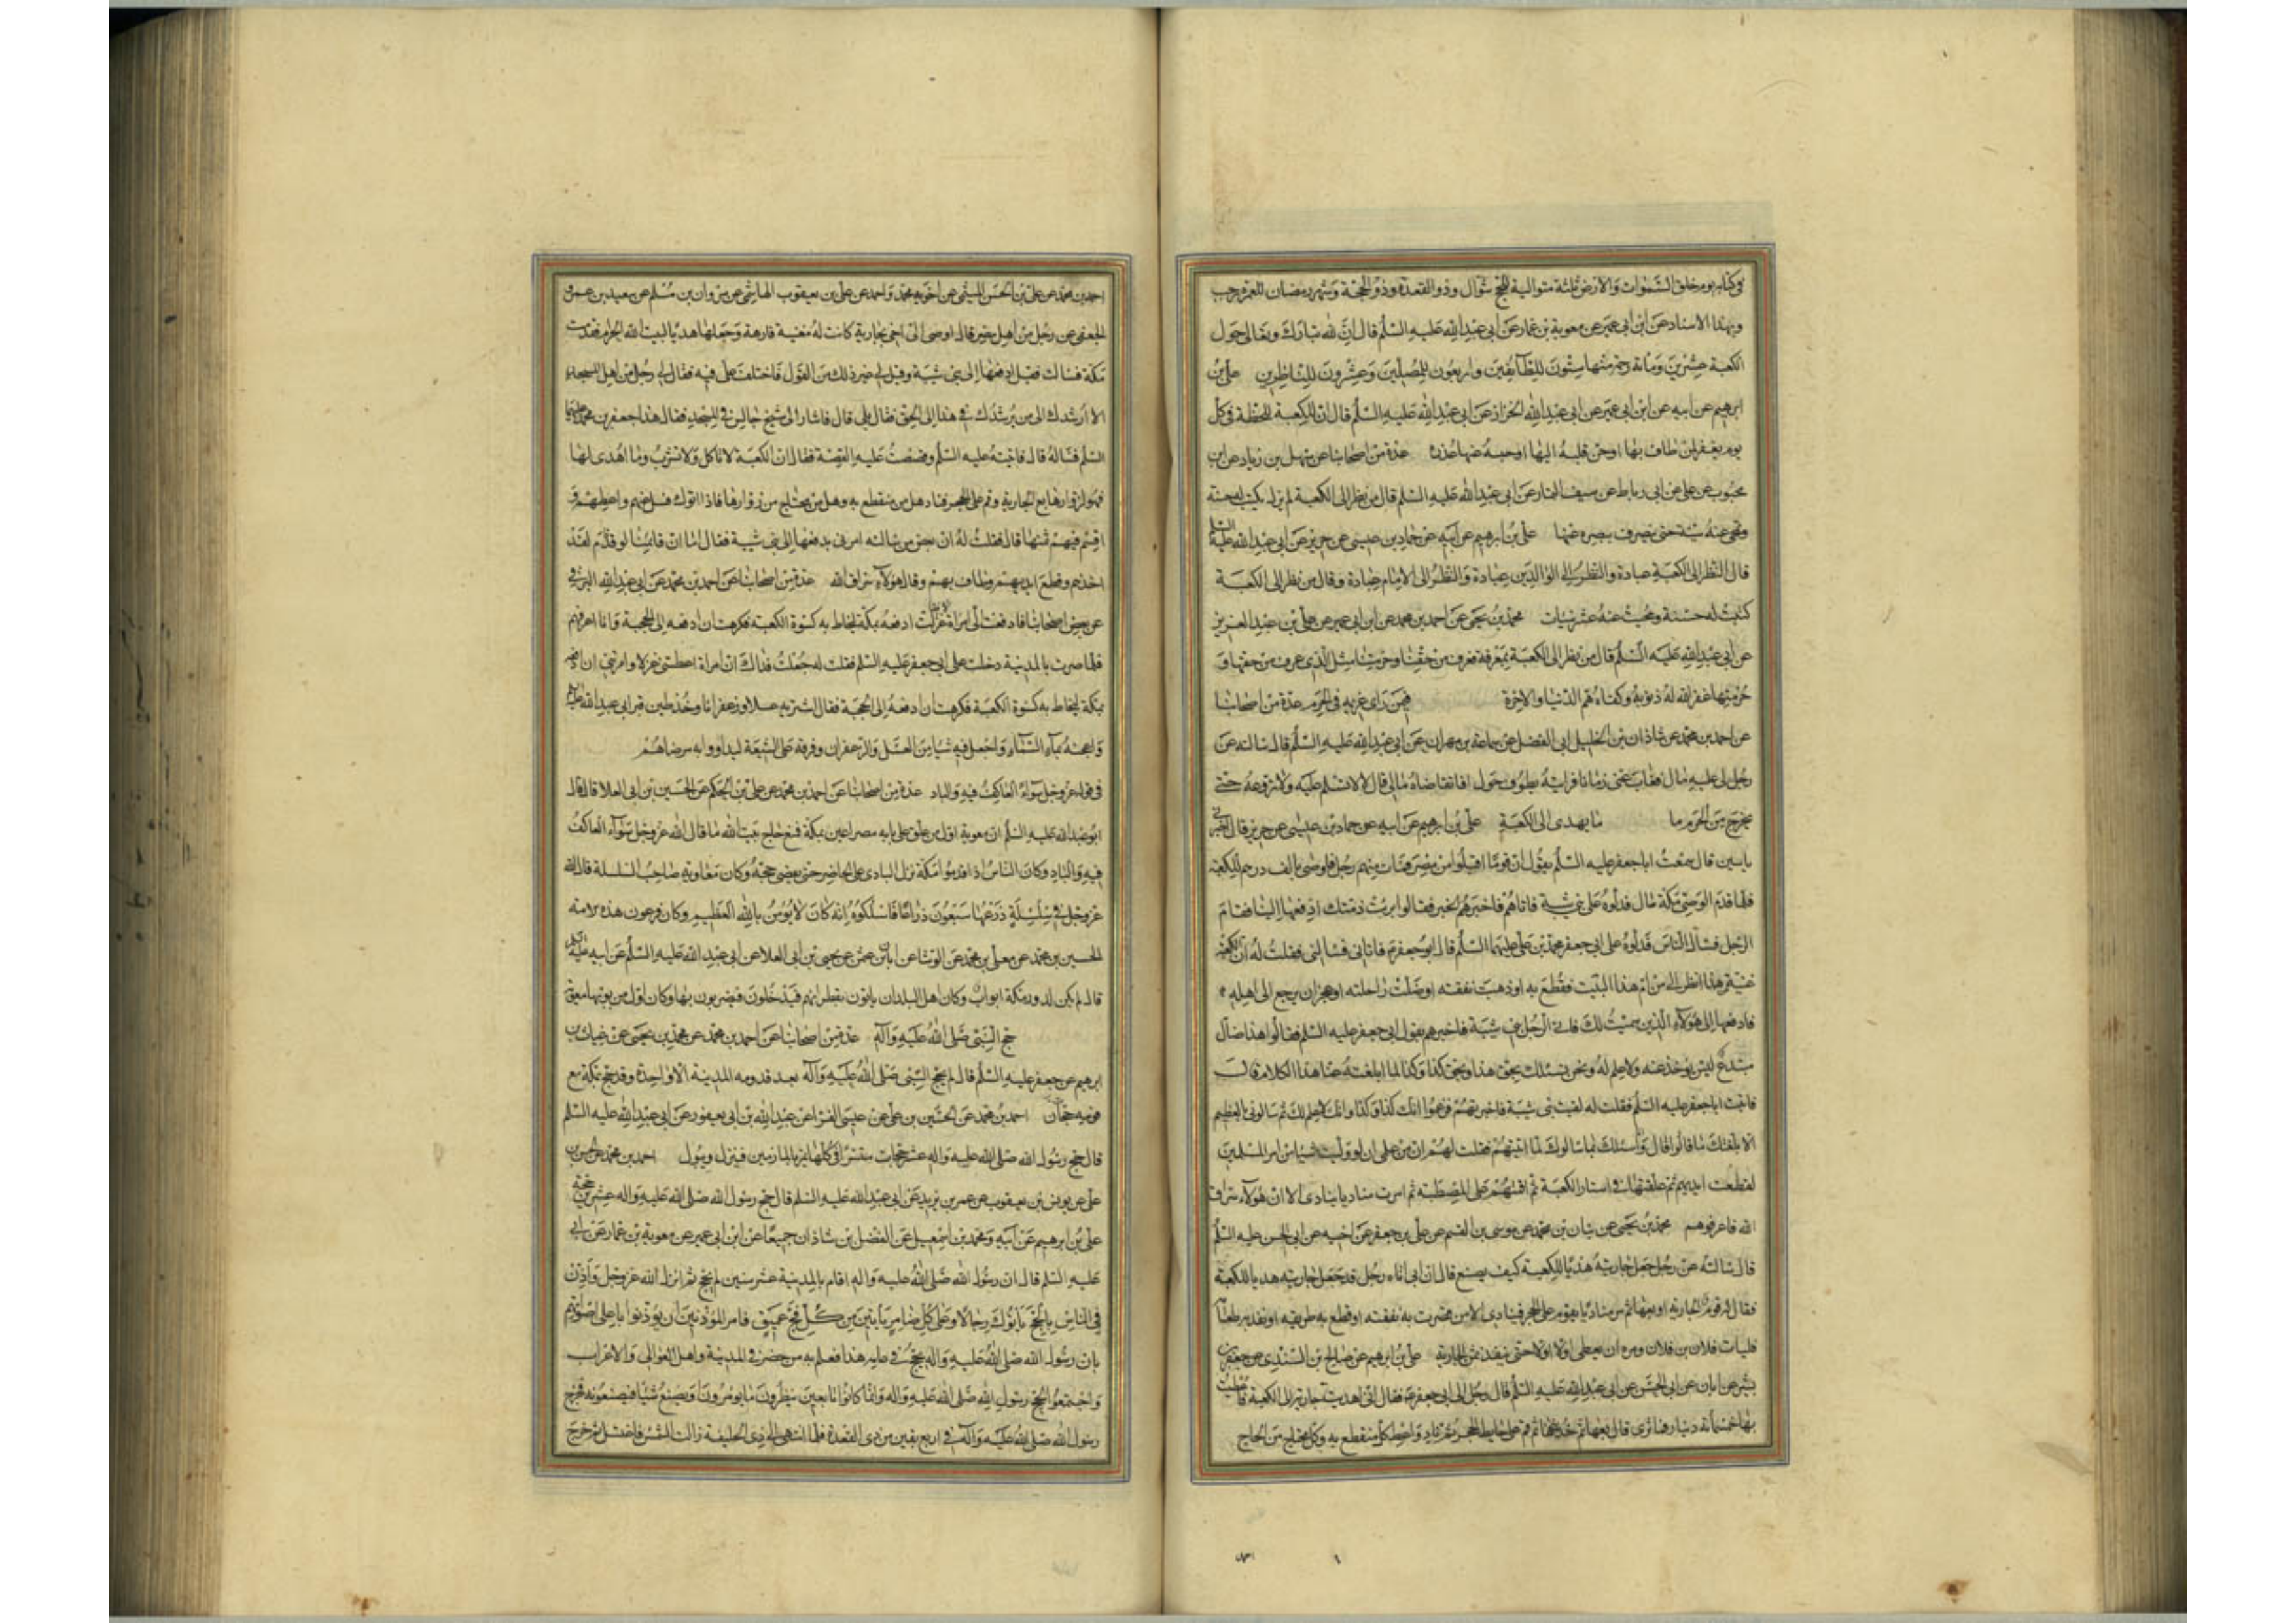 في كتابه يوم خلق السموات والارض ثلثة متوالية للحج شوال وذو القعدة وذو الحجة وشهر رمضان للعمرة رجب
وبهذا الاسناد عن ابن ابي عمير عن معوية بن عمار عن ابي عبد الله عليه السلم قال ان لله تبارك وتعالى حول
الكعبة عشرين ومائة رحمة منها ستون للطآئفين واربعون للمصلين وعشرون للناظرين علي بن
ابرهيم عن ابيه عن ابن ابي عمير عن ابي عبد الله الخزاز عن ابي عبد الله عليه السلم قال ان للكعبة للحظة في كل
يوم يغفر لمن طاف بها او حن قلبه اليها او حبسه عنها عذر عدة من اصحابنا عن سهل بن زياد عن ابن
محبوب عن علي عن ابي رباط عن سيف التمار عن ابي عبد الله عليه السلم قال من نظر الى الكعبة لم يزل يكتب له حسنة
ومحي عنه سيئة حتى يصرف ببصره عنها علي بن ابرهيم عن ابيه عن حماد بن عيسى عن حريز عن ابي عبد الله عليه السلم
قال النظر الى الكعبة عبادة والنظر الى الوالدين عبادة والنظر الى الامام عبادة وقال من نظر الى الكعبة
كتبت له حسنة ومحيت عنه عشر سيئات محمد بن يحيى عن احمد بن محمد عن ابن ابي عمير عن علي بن عبد العزيز
عن ابي عبد الله عليه السلم قال من نظر الى الكعبة بمعرفة فعرف من حقنا وحرمتنا مثل الذي عرف من حقها و
حرمتها غفر الله له ذنوبه وكفاه هم الدنيا والاخرة فيمن راى غريمه في الحرم عدة من اصحابنا
عن احمد بن محمد عن شاذان بن الخليل ابي الفضل عن سماعة بن مهران عن ابي عبد الله عليه السلم قال سالته عن
رجل لي عليه مال فغاب عني زمانا فرايته يطوف حول افاتقاضاه مالي قال لا لا تسلم عليه ولا تروعه حتى
يخرج من الحرم ما ما يهدى الى الكعبة علي بن ابرهيم عن ابيه عن حماد بن عيسى عن حريز قال اخبرني
ياسين قال سمعت ابا جعفر عليه السلم يقول ان قوما اقبلوا من مصر فمات منهم رجل فاوصى بالف درهم للكعبة
فلما قدم الوصي مكة سال فدلوه على بني شيبة فاتاهم فاخبرهم الخبر فقالوا برئت ذمتك ادفعها الينا فقام
الرجل فسال الناس فدلوه على ابي جعفر محمد بن علي عليهما السلم قال ابو جعفر فاتاني فسالني فقلت له ان الكعبة
غنية عن هذا انظر الى من ام هذا البيت فقطع به او ذهبت نفقته او ضلت راحلته او عجز ان يرجع الى اهله
فادفعها الى هؤلاء الذين سميت لك فاتى الرجل بني شيبة فاخبرهم بقول ابي جعفر عليه السلم فقالوا هذا ضال
مبتدع ليس يؤخذ عنه ولا علم له ونحن نسئلك بحق هذا وبحق كذا وكذا لما ابلغته عنا هذا الكلام قال
فاتيت ابا جعفر عليه السلم فقلت له لقيت بني شيبة فاخبرتهم فزعموا انك كذا وكذا وانك لا علم لك ثم سالوني بالعظيم
الا بلغتك ما قالوا قال وانا اسئلك بما سالوك لما اتيتهم فقلت لهم ان من علمي ان لو وليت شيئا من امر المسلمين
لقطعت ايديهم ثم علقتها في استار الكعبة ثم اقمتهم على المصطبة ثم امرت مناديا ينادي الا ان هؤلاء سراق
الله فاعرفوهم محمد بن يحيى عن بنان بن محمد عن موسى بن القسم عن علي بن جعفر عن اخيه عن ابي الحسن عليه السلم
قال سالته عن رجل جعل جاريته هديا للكعبة كيف يصنع قال ان ابي اتاه رجل قد جعل جاريته هديا للكعبة
فقال له قوم الجارية او بعها ثم مر مناديا يقوم على الحجر فينادي الا من قصرت به نفقته او قطع به طريقه او نفد به طعام
فليات فلان بن فلان ومره ان يعطي اولا فاولا حتى ينفد ثمن الجارية علي بن ابرهيم عن صالح بن السندي عن جعفر بن
بشير عن ابان عن ابي الحسن عن ابي عبد الله عليه السلم قال رجل الى ابي جعفر فقال اني اهديت جارية الى الكعبة فاعطيت
بها خمسمائة دينار فما ترى قال بعها ثم خذ ثمنها ثم قم على حايط الحجر ثم ناد واعط كل منقطع به وكل محتاج من الحاج
احمد بن محمد عن علي بن الحسن الميثمي عن اخويه محمد واحمد عن علي بن يعقوب الهاشمي عن مروان بن مسلم عن سعيد بن عمرو
الجعفي عن رجل من اهل مصر قال اوصى الي اخي بجارية كانت له مغنية فارهة وجعلها هديا لبيت الله الحرام فقدمت
مكة فسالت فقيل ادفعها الى بني شيبة وقيل لي غير ذلك من القول فاختلف علي فيه فقال لي رجل من اهل المسجد
الا ارشدك الى من يرشدك في هذا الى الحق فقال بلى قال فاشار الى شيخ جالس في المسجد فقال هذا جعفر بن محمد عليهما
السلم فساله قال فاتيته عليه السلم وقصصت عليه القصة فقال ان الكعبة لا تاكل ولا تشرب وما اهدى لها
فهو لزوارها بع الجارية وقم على الحجر فناد هل من منقطع به وهل من محتاج من زوارها فاذا اتوك فسل عنهم واعطهم و
اقسم فيهم ثمنها قال فقلت له ان بعض من سالته امرني بدفعها الى بني شيبة فقال اما ان قائمنا لو قد قام لقد
اخذهم وقطع ايديهم وطاف بهم وقال هؤلاء سراق الله عدة من اصحابنا عن احمد بن محمد عن ابي عبد الله البرقي
عن بعض اصحابنا قال دفعت الي امراة غزلا فقالت ادفعه بمكة ليخاط به كسوة الكعبة فكرهت ان ادفعه الى الحجبة وانا اعرفهم
فلما صرت بالمدينة دخلت على ابي جعفر عليه السلم فقلت له جعلت فداك ان امراة اعطتني غزلا وامرتني ان ادفعه
بمكة ليخاط به كسوة الكعبة فكرهت ان ادفعه الى الحجبة فقال اشتر به عسلا وزعفرانا وخذ طين قبر ابي عبد الله عليه السلم
واعجنه بماء السماء واجعل فيه شيئا من العسل والزعفران وفرقه على الشيعة ليداووا به مرضاهم
في قوله عز وجل سواء العاكف فيه والباد عدة من اصحابنا عن احمد بن محمد عن علي بن الحكم عن الحسين بن ابي العلا قال قال
ابو عبد الله عليه السلم ان معوية اول من علق على بابه مصراعين بمكة فمنع حاج بيت الله ما قال الله عز وجل سواء العاكف
فيه والباد وكان الناس اذا قدموا مكة نزل البادي على الحاضر حتى يقضي حجه وكان معاوية صاحب السلسلة قال الله
عز وجل في سلسلة ذرعها سبعون ذراعا فاسلكوه انه كان لا يؤمن بالله العظيم وكان فرعون هذه الامة
الحسين بن محمد عن معلى بن محمد عن الوشا عن ابان بن عثمن عن يحيى بن ابي العلا عن ابي عبد الله عليه السلم عن ابيه عليه السلم
قال لم يكن لدور مكة ابواب وكان اهل البلدان ياتون بقطرانهم فيدخلون فيضربون بها وكان اول من بوبها معوية
حج النبي صلى الله عليه وآله عدة من اصحابنا عن احمد بن محمد عن محمد بن يحيى عن غياث بن
ابرهيم عن جعفر عليه السلم قال لم يحج النبي صلى الله عليه وآله بعد قدومه المدينة الا واحدة وقد حج بمكة مع
قومه حجات احمد بن محمد عن الحسين بن علي عن عيسى الفرا عن عبد الله بن ابي يعفور عن ابي عبد الله عليه السلم
قال حج رسول الله صلى الله عليه واله عشر حجات مستترا في كلها يمر بالمازمين فينزل ويبول احمد بن محمد عن الحسن بن
علي عن يونس بن يعقوب عن عمر بن يزيد عن ابي عبد الله عليه السلم قال حج رسول الله صلى الله عليه واله عشرين حجة
علي بن ابرهيم عن ابيه ومحمد بن اسمعيل عن الفضل بن شاذان جميعا عن ابن ابي عمير عن معوية بن عمار عن ابي
عليه السلم قال ان رسول الله صلى الله عليه واله اقام بالمدينة عشر سنين لم يحج ثم انزل الله عز وجل واذن
في الناس بالحج ياتوك رجالا وعلى كل ضامر ياتين من كل فج عميق فامر المؤذنين ان يؤذنوا باعلى اصواتهم
بان رسول الله صلى الله عليه واله يحج في عامه هذا فعلم به من حضر في المدينة واهل العوالي والاعراب
واجتمعوا لحج رسول الله صلى الله عليه واله وانما كانوا تابعين ينظرون ما يؤمرون ويصنع شيئا فيصنعونه فخرج
رسول الله صلى الله عليه وآله في اربع بقين من ذي القعدة فلما انتهى الى ذي الحليفة زالت الشمس فاغتسل ثم خرج